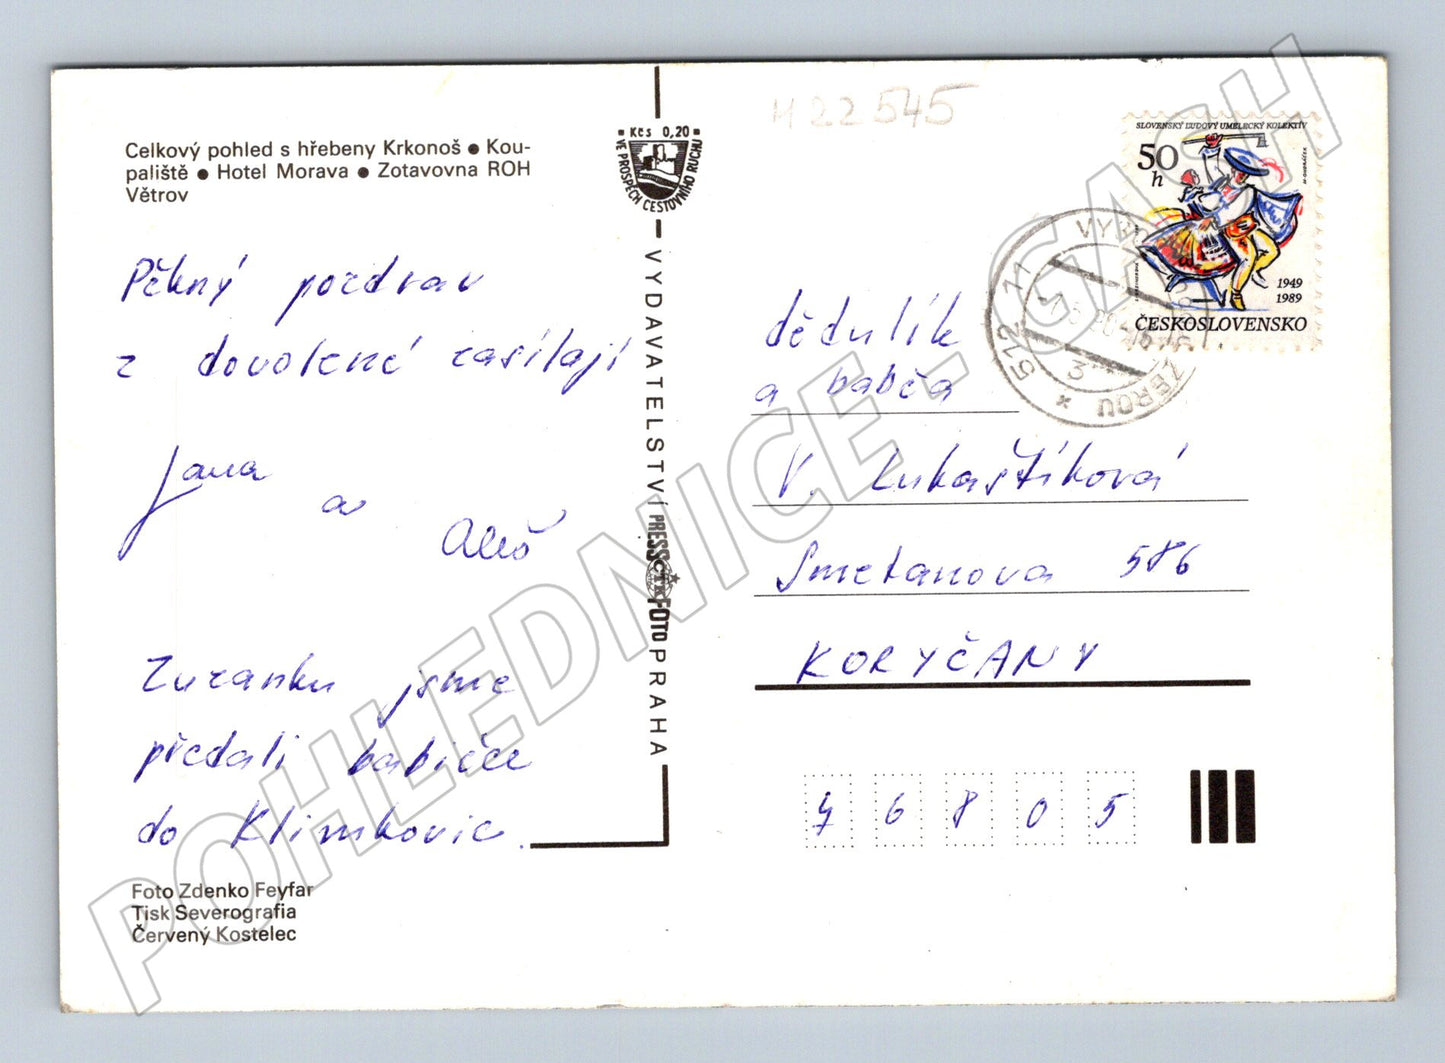 Celkový pohled s hřebeny Krkonoš • Kou-
paliště • Hotel Morava • Zotavovna ROH
Větrov
Pěkný pozdrav
z dovolené zasílají
Jana
a
Aleš
Zuzanku jsme
předali babičce
do Klimkovic.
Foto Zdenko Feyfar
Tisk Severografia
Červený Kostelec
Kčs 0,20
VE PROSPĚCH CESTOVNÍHO RUCHU
VYDAVATELSTVÍ PRESSFOTO PRAHA
ČTK
M 22545
SLOVENSKÝ ĽUDOVÝ UMELECKÝ KOLEKTÍV
50
h
1949
1989
ČESKOSLOVENSKO
512 11
3
dědulík
a babča
V. Lukaštíková
Smetanova 586
KORYČANY
76805
POHLEDNICE - GASH